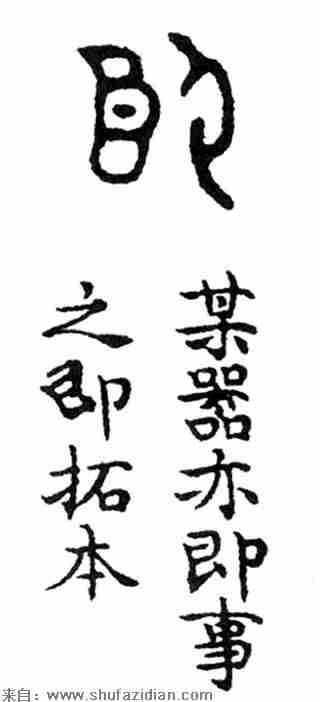 即
某器亦即事
之即拓本
来自：www.shufazidian.com